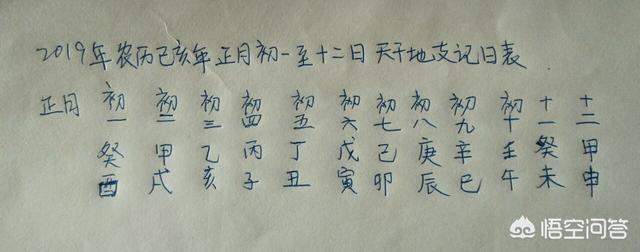 2019年农历己亥年正月初一至十二日天干地支记日表
正月 初一 初二 初三 初四 初五 初六 初七 初八 初九 初十 十一 十二
癸酉 甲戌 乙亥 丙子 丁丑 戊寅 己卯 庚辰 辛巳 壬午 癸未 甲申
悟空问答